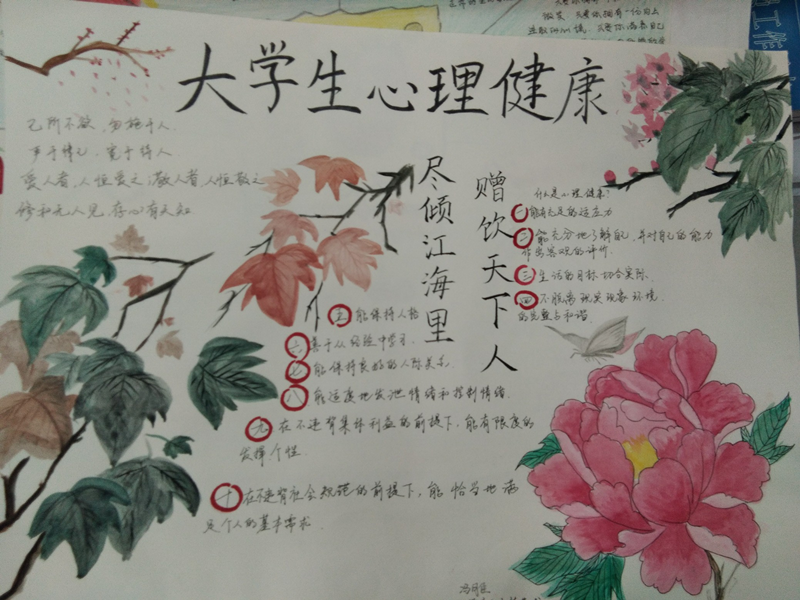 大学生心理健康
己所不欲，勿施于人
严于律己，宽于待人
爱人者，人恒爱之 敬人者，人恒敬之
修和无人见，存心有天知
尽倾江海里
赠饮天下人
什么是心理健康？
一 能有充足的适应力
二 能充分地了解自己，并对自己的能力
作出客观的评价.
三 生活的目标切合实际.
四 不脱离现实现象环境.
的完整与和谐
五 能保持人格
六 善于从经验中学习.
七 能保持良好的人际关系
八 能适度地发泄情绪和控制情绪.
九 在不违背集体利益的前提下，能有限度的
发挥个性.
十 在不违背社会规范的前提下，能恰当地满
足个人的基本需求.